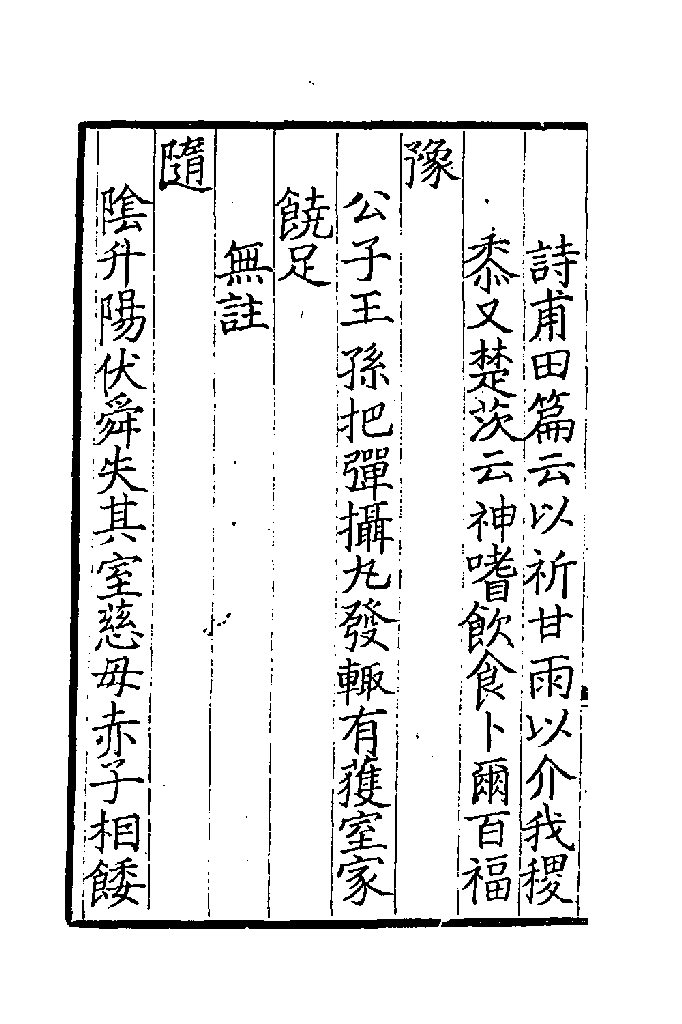 詩甫田篇云以祈甘雨以介我稷
黍又楚茨云神嗜飲食卜爾百福
豫
公子王孫把彈攝丸發輙有獲室家
饒足
無註
隨
隂升陽伏舜失其室慈母赤子相餧